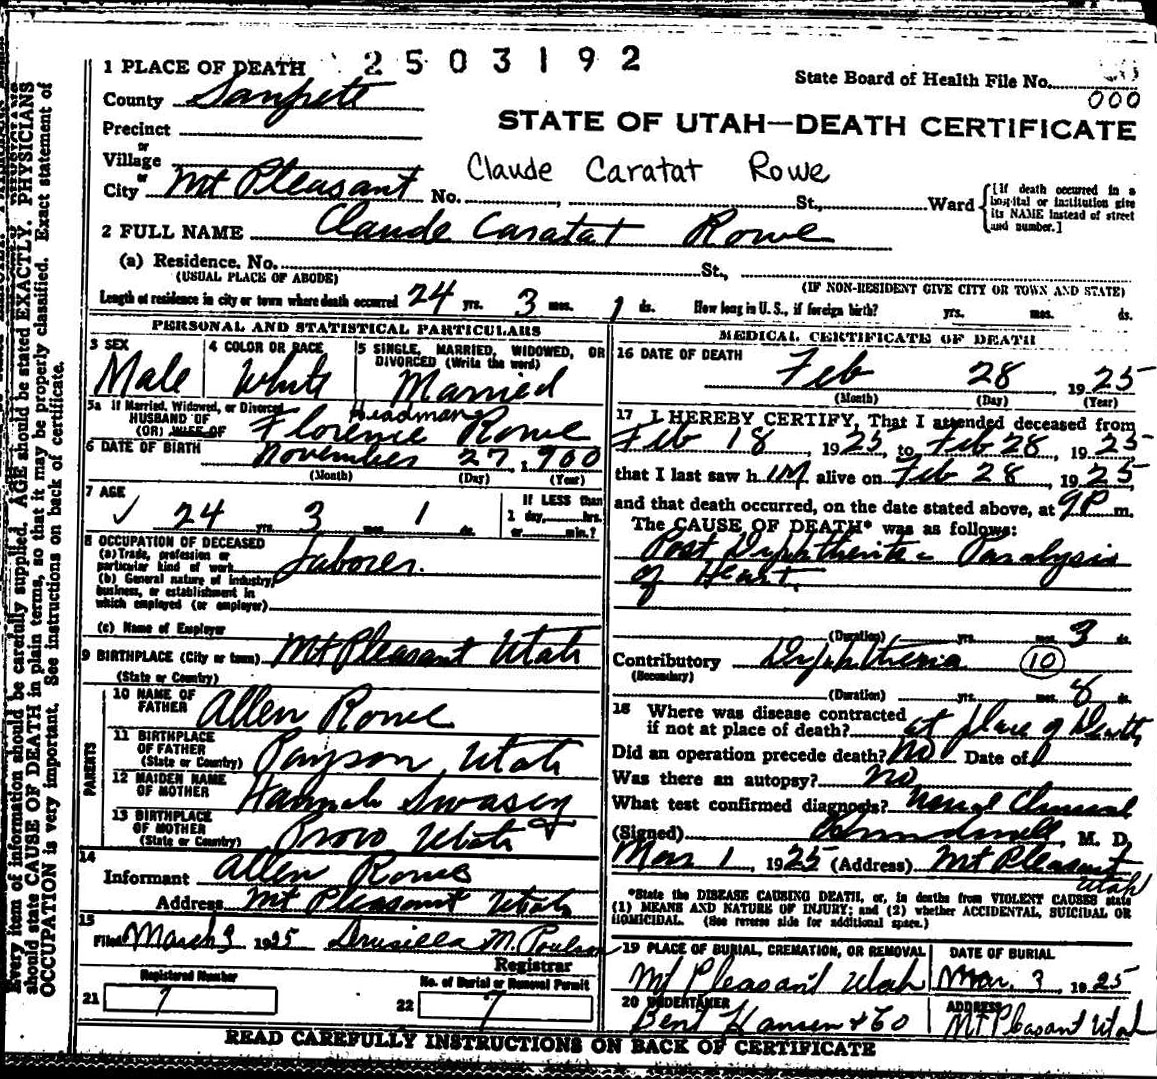 2503192
State Board of Health File No.
000
1 PLACE OF DEATH
County Sanpete
STATE OF UTAH—DEATH CERTIFICATE
Precinct
or
Village
Claude Caratat Rowe
or
City Mt Pleasant No. St., Ward
{[If death occurred in a hospital or institution give its NAME instead of street and number.]
2 FULL NAME Claude Caratat Rowe
(a) Residence. No. St.,
(USUAL PLACE OF ABODE) (IF NON-RESIDENT GIVE CITY OR TOWN AND STATE)
Length of residence in city or town where death occurred 24 yrs. 3 mos. 1 ds. How long in U. S., if foreign birth? yrs. mos. ds.
PERSONAL AND STATISTICAL PARTICULARS
3 SEX
Male
4 COLOR OR RACE
White
5 SINGLE, MARRIED, WIDOWED, OR DIVORCED (Write the word)
Married
5a If Married, Widowed, or Divorced
HUSBAND OF
(OR) WIFE OF Florence Headman Rowe
6 DATE OF BIRTH November 27, 1900
(Month) (Day) (Year)
7 AGE
24 yrs. 3 mos. 1 ds.
If LESS than
1 day, hrs.
or min.?
8 OCCUPATION OF DECEASED
(a) Trade, profession or
particular kind of work Laborer.
(b) General nature of industry,
business, or establishment in
which employed (or employer)
(c) Name of Employer
9 BIRTHPLACE (City or town) Mt Pleasant Utah
(State or Country)
PARENTS
10 NAME OF
FATHER Allen Rowe
11 BIRTHPLACE
OF FATHER
(State or Country) Payson Utah
12 MAIDEN NAME
OF MOTHER Hannah Swasey
13 BIRTHPLACE
OF MOTHER
(State or Country) Provo Utah
14
Informant Allen Rowe
Address Mt Pleasant Utah
15
Filed March 3 1925 Drusilla M. Poulson
Registrar
Registered Number
21 7
No. of Burial or Removal Permit
22 7
MEDICAL CERTIFICATE OF DEATH
16 DATE OF DEATH
Feb 28 1925
(Month) (Day) (Year)
17 I HEREBY CERTIFY, That I attended deceased from
Feb 18, 1925, to Feb 28, 1925
that I last saw h im alive on Feb 28, 1925,
and that death occurred, on the date stated above, at 9P m.
The CAUSE OF DEATH* was as follows:
Post Dyphtheritic Paralysis
of Heart.
(Duration) yrs. mos. 3 ds.
Contributory Dyphtheria 10
(Secondary)
(Duration) yrs. mos. 8 ds.
18 Where was disease contracted
if not at place of death? at place of Death
Did an operation precede death? No Date of
Was there an autopsy? no
What test confirmed diagnosis? Usual Clinical
(Signed) , M. D.
Mar 1 1925 (Address) Mt Pleasant
Utah
*State the DISEASE CAUSING DEATH, or, in deaths from VIOLENT CAUSES state
(1) MEANS AND NATURE OF INJURY; and (2) whether ACCIDENTAL, SUICIDAL OR
HOMICIDAL. (See reverse side for additional space.)
19 PLACE OF BURIAL, CREMATION, OR REMOVAL
Mt Pleasant Utah
DATE OF BURIAL
Mar. 3, 1925
20 UNDERTAKER
Bent Hansen & Co
ADDRESS
Mt Pleasant Utah
READ CAREFULLY INSTRUCTIONS ON BACK OF CERTIFICATE
Every item of information should be carefully supplied. AGE should be stated EXACTLY. PHYSICIANS
should state CAUSE OF DEATH in plain terms, so that it may be properly classified. Exact statement of
OCCUPATION is very important. See instructions on back of certificate.